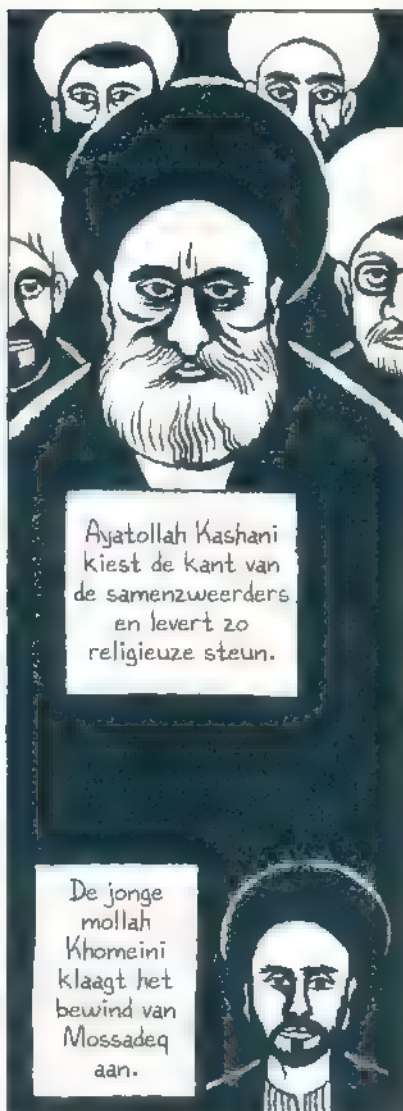 Ayatollah Kashani
kiest de kant van
de samenzweerders
en levert zo
religieuze steun.
De jonge
mollah
Khomeini
klaagt het
bewind van
Mossadeq
aan.